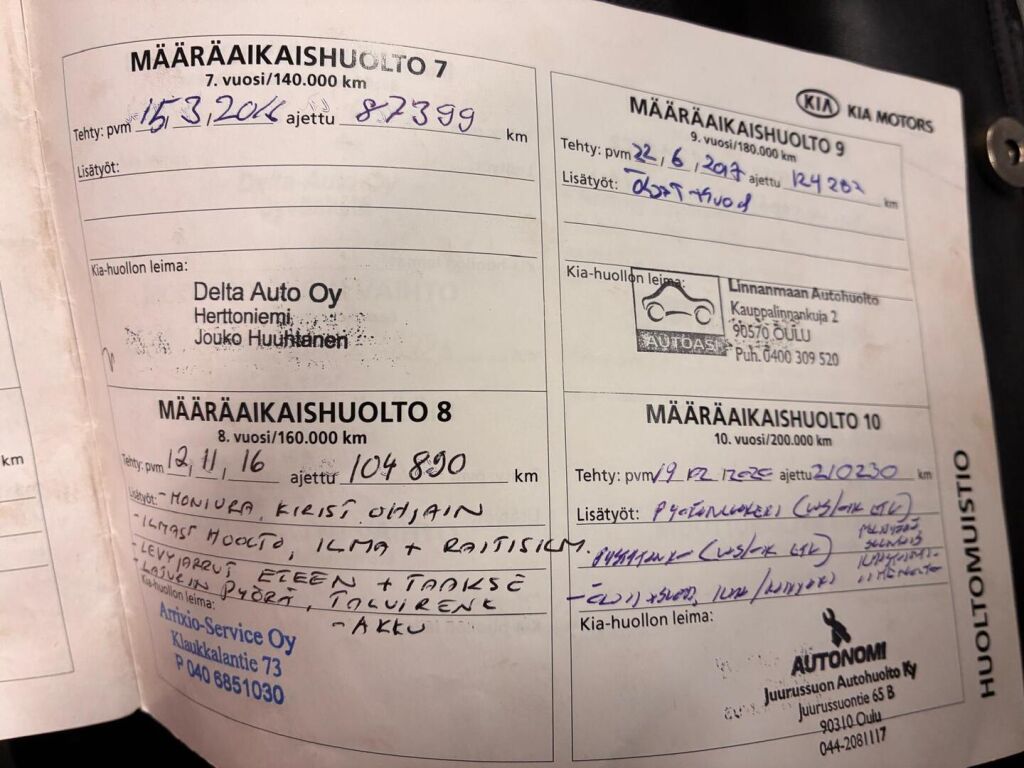 MÄÄRÄAIKAISHUOLTO 7
7. vuosi/140.000 km
Tehty: pvm 15.3.2016 ajettu 87399 km
Lisätyöt:
Kia-huollon leima:
Delta Auto Oy
Herttoniemi
Jouko Huuhtanen
MÄÄRÄAIKAISHUOLTO 8
8. vuosi/160.000 km
Tehty: pvm 12,11,16 ajettu 104890 km
Lisätyöt: - MONIURA. KIRIST. OHJAIN
- ILMAST HUOLTO, ILMA + RAITISILM.
- LEVYJARRUT ETEEN + TAAKSE
- LATURIN PYÖRÄ, TALVIRENK
Kia-huollon leima:
- AKKU
Arrixio-Service Oy
Klaukkalantie 73
P 040 6851030
KIA KIA MOTORS
MÄÄRÄAIKAISHUOLTO 9
9. vuosi/180.000 km
Tehty: pvm 22,6,2017 ajettu 124202 km
Lisätyöt:
Kia-huollon leima:
AUTOASI
Linnanmaan Autohuolto
Kauppalinnankuja 2
90570 OULU
Puh. 0400 309 520
MÄÄRÄAIKAISHUOLTO 10
10. vuosi/200.000 km
Tehty: pvm 19 ajettu 210230 km
Lisätyöt:
Kia-huollon leima:
AUTONOMI
Juurussuon Autohuolto Ky
Juurussuontie 65 B
90310 Oulu
044-2081117
HUOLTOMUISTIO
km